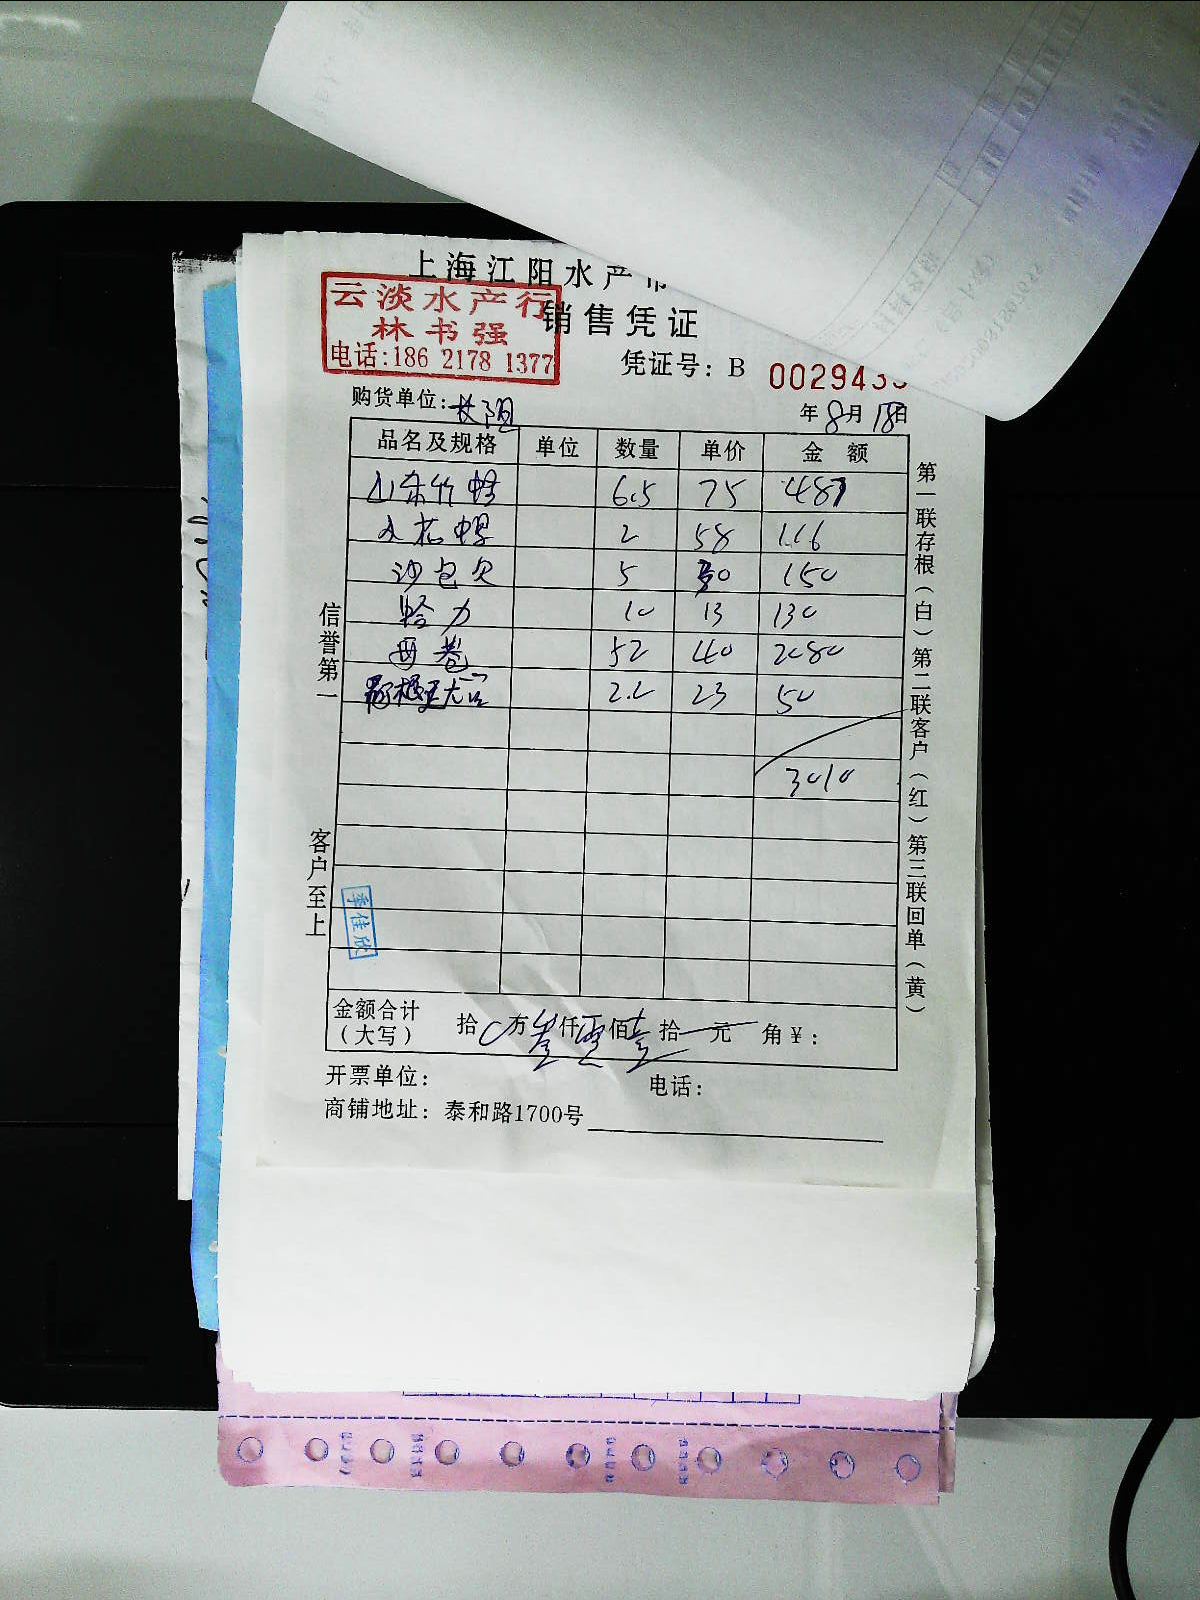 上海江阳水产市
销售凭证
云淡水产行
林书强
电话:186 2178 1377
凭证号: B 002943
购货单位: 长阳
年 8月 18日
品名及规格 单位 数量 单价 金额
山东竹蛏 6.5 75 487
2 58 116
沙包欠 5 30 150
蛤力 10 13 130
52 40 2080
2.2 23 50
3010
信誉第一
客户至上
第一联存根(白)第二联客户(红)第三联回单(黄)
季佳欣
金额合计(大写) 拾 0 万 叁 仟 零 佰 壹 拾 元 角 ¥:
开票单位: 电话:
商铺地址: 泰和路1700号